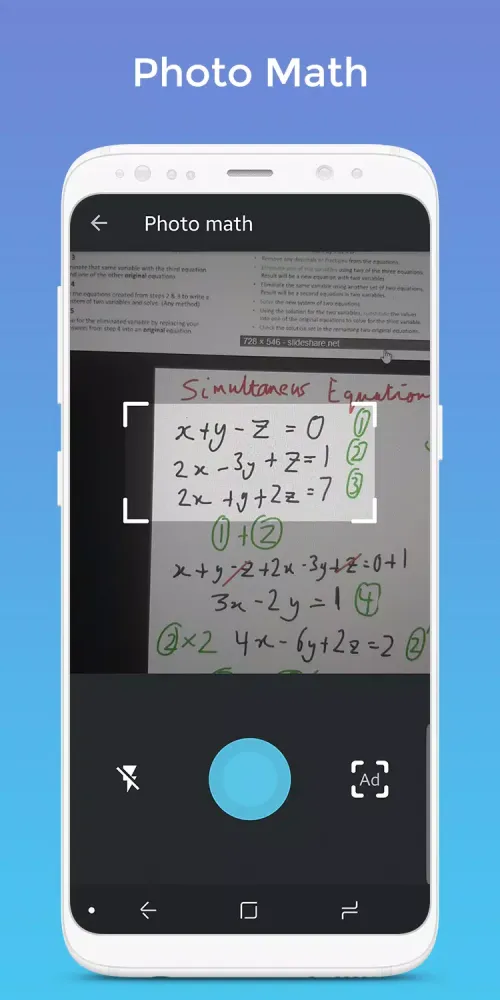 Photo Math
Photo math
3
that same variable with the third equation
one of the other original equations
4
the equations created from steps 2 & 3 to write a
of two variables and solve. (Any method)
5
for the eliminated variable by replacing your
from step 4 into an original equation
from the equations.
using two of the three equations.
Result will be a new equation with two variables.
Eliminate the same variable using another set of two equations.
Result will be a second equation in two variables.
the new system of two equations.
Using the solution for the two variables,
into one of the original equations to solve for the third variable.
Check the solution set in the remaining two original equations.
728 × 546 - slideshare.net
Simultaneus Equation
x+y-z=0 ①
2x-3y+z=1 ②
2x+y+2z=7 ③
①+②
x+y-z+2x-3y+z=0+1
3x-2y=1 ④
②×2 4x-6y+2z=2 ②'
Ad